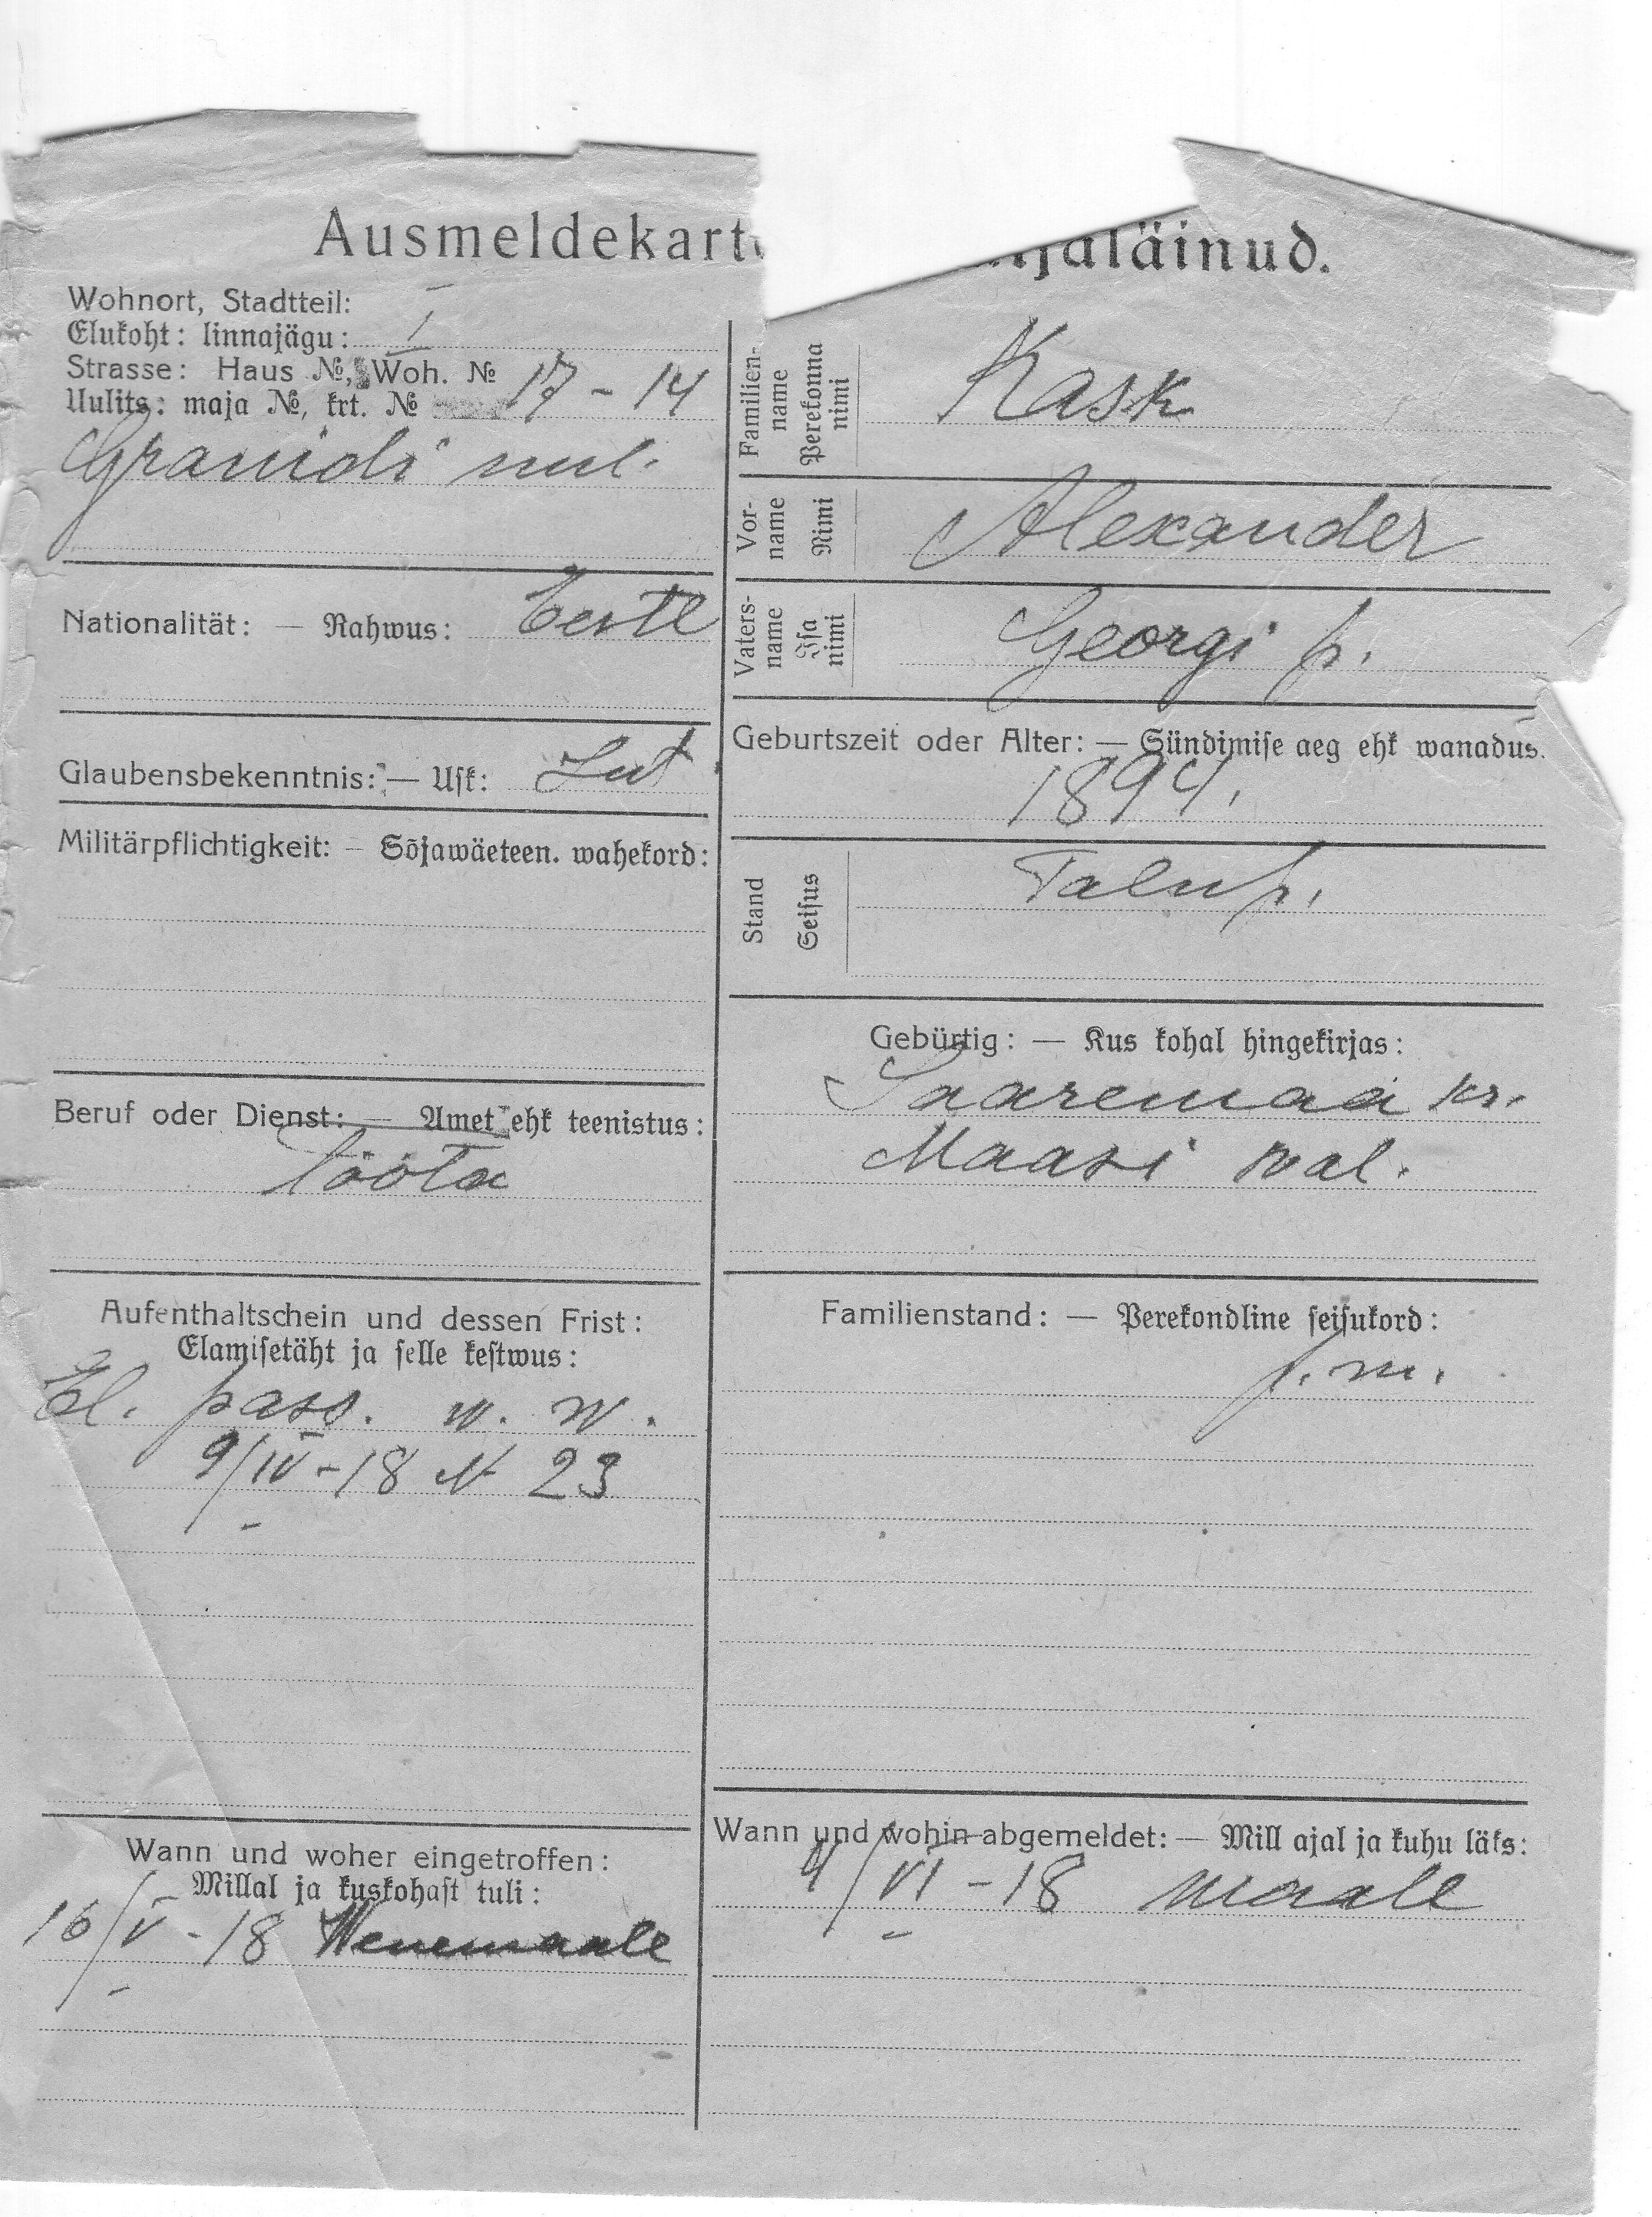 Ausmeldekart
jaläinud.
Wohnort, Stadtteil:
Elukoht: linnajägu: I
Strasse: Haus №, Woh. №
Uulits: maja №, krt. № 17 - 14
Graniidi uul.
Nationalität: — Rahwus: Eestl
Glaubensbekenntnis: — Usk: Lut
Militärpflichtigkeit: — Sõjawäeteen. wahekord:
Beruf oder Dienst: — Amet ehk teenistus:
Tööta
Aufenthaltschein und dessen Frist:
Elamisetäht ja selle kestwus:
El. pass. w. w.
9/IV - 18 N 23
Wann und woher eingetroffen:
Millal ja kuskohast tuli:
16/V - 18 Wenemaale
Familien-
name
Perekonna
nimi
Kask
Vor-
name
Nimi
Alexander
Vaters-
name
Isa
nimi
Georgi p.
Geburtszeit oder Alter: — Sündimise aeg ehk wanadus.
1894.
Stand
Seisus
Talup.
Gebürtig: — Kus kohal hingekirjas:
Saaremaa kr.
Maasi wal.
Familienstand: — Perekondline seisukord:
p. m.
Wann und wohin abgemeldet: — Mill ajal ja kuhu läks:
4/VI - 18 maale